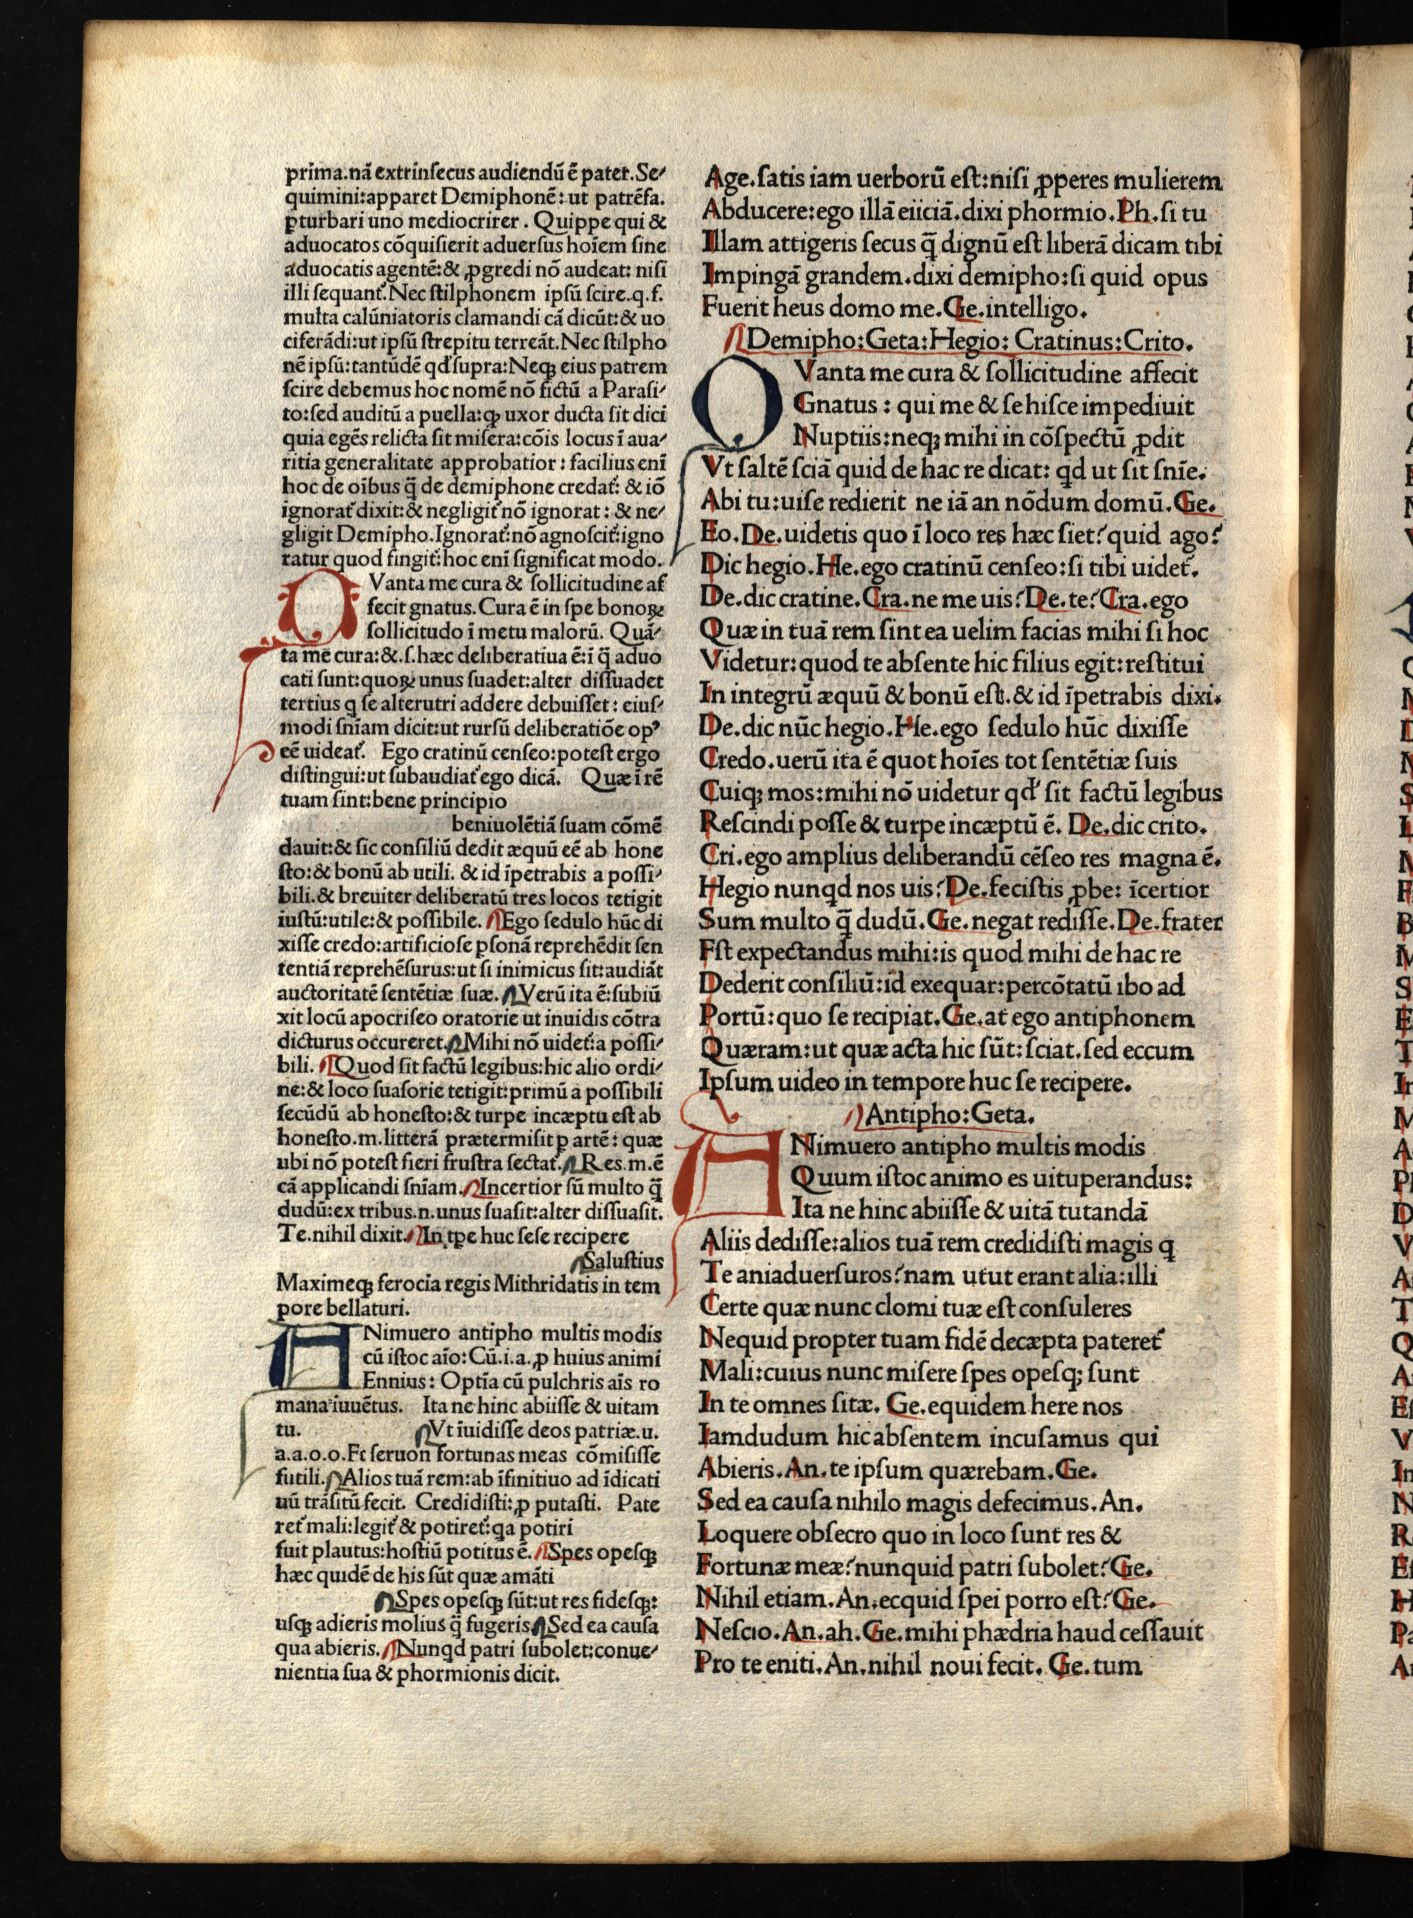 prima.nã extrinſecus audiendũ ẽ pater. Se-
quimini:apparet Demiphonẽ: ut patrẽfa.
ꝑturbari uno mediocrirer. Quippe qui &
aduocatos cõquiſierit aduerſus hoĩem ſine
aduocatis agentẽ:& ꝓgredi nõ audeat: niſi
illi ſequant᷑. Nec ſtilphonem ipſũ ſcire.q.f.
multa calũniatoris clamandi cã dicũt:& uo
ciferãdi:ut ipſũ ſtrepitu terreãt. Nec ſtilpho
nẽ ipſũ:tantũdẽ qđ ſupra:Neqꝫ eius patrem
ſcire debemus hoc nomẽ nõ fictũ a Paraſi-
to:ſed auditũ a puella:qꝫ uxor ducta ſit dici
quia egẽs relicta ſit miſera:cõis locus ĩ aua-
ritia generalitate approbatior: facilius enĩ
hoc de oĩbus q̃ de demiphone credat᷑: & iõ
ignorat᷑ dixit:& negligit᷑ nõ ignorat: & ne-
gligit Demipho. Ignorat᷑:nõ agnoſcit᷑:igno
ratur quod fingit᷑:hoc enĩ ſignificat modo.
QVanta me cura & ſollicitudine af
fecit gnatus. Cura ẽ in ſpe bonoꝝ
ſollicitudo ĩ metu malorũ. Quã-
ta me cura:&.ſ.hæc deliberatiua ẽ:ĩ q̃ aduo
cati ſunt:quoꝝ unus ſuadet:alter diſſuadet
tertius q ſe alterutri addere debuiſſet: eiuſ-
modi ſnĩam dicit:ut rurſũ deliberatiõe opꝰ
eẽ uideat᷑. Ego cratinũ cenſeo:poteſt ergo
diſtingui:ut ſubaudiat᷑ ego dicã. Quæ ĩ rẽ
tuam ſint:bene principio
beniuolẽtiã ſuam cõmẽ
dauit:& ſic conſiliũ dedit æquũ eẽ ab hone
ſto:& bonũ ab utili. & id ĩpetrabis a poſſi-
bili.& breuiter deliberatũ tres locos tetigit
iuſtũ:utile:& poſſibile. Ego ſedulo hũc di
xiſſe credo:artificioſe ꝑſonã reprehẽdit ſen
tentiã reprehẽſurus:ut ſi inimicus ſit:audiãt
auctoritatẽ ſentẽtiæ ſuæ. Verũ ita ẽ:ſubiũ
xit locũ apocriſeo oratorie ut inuidis cõtra
dicturus occureret. Mihi nõ uidet᷑:a poſſi-
bili. Quod ſit factũ legibus:hic alio ordi-
ne:& loco ſuaſorie tetigit:primũ a poſſibili
ſecũdũ ab honeſto:& turpe incæptu eſt ab
honeſto.m.litterã prætermiſit ꝑ artẽ: quæ
ubi nõ poteſt fieri fruſtra ſectat᷑. Res.m.ẽ
cã applicandi ſnĩam. Incertior ſũ multo q̃
dudũ:ex tribus.n.unus ſuaſit:alter diſſuaſit.
Te.nihil dixit. In tꝑe huc ſeſe recipere
Saluſtius
Maximeqꝫ ferocia regis Mithridatis in tem
pore bellaturi.
ANimuero antipho multis modis
cũ iſtoc aĩo:Cũ.i.a.ꝓ huius animi
Ennius: Optĩa cũ pulchris aĩs ro
mana iuuẽtus. Ita ne hinc abiiſſe & uitam
tu. Vt ĩuidiſſe deos patriæ.u.
a.a.o.o.Et ſeruon fortunas meas cõmiſiſſe
futili. Alios tuã rem:ab ĩfinitiuo ad ĩdicati
uũ trãſitũ fecit. Credidiſti:ꝓ putaſti. Pate
ret᷑ mali:legit᷑ & potiret᷑:qa potiri
fuit plautus:hoſtiũ potitus ẽ. Spes opeſqꝫ
hæc quidẽ de his ſũt quæ amãti
Spes opeſqꝫ ſũt:ut res fideſqꝫ:
uſqꝫ adieris molius q̃ fugeris. Sed ea cauſa
qua abieris. Nunqd patri ſubolet:conue-
nientia ſua & phormionis dicit.
Age.ſatis iam uerborũ eſt:niſi ꝓperes mulierem
Abducere:ego illã eiiciã.dixi phormio. Ph.ſi tu
Illam attigeris ſecus q̃ dignũ eſt liberã dicam tibi
Impingã grandem.dixi demipho:ſi quid opus
Fuerit heus domo me. Ge.intelligo.
Demipho:Geta:Hegio: Cratinus:Crito.
QVanta me cura & ſollicitudine affecit
Gnatus: qui me & ſe hiſce impediuit
Nuptiis:neqꝫ mihi in cõſpectũ ꝓdit
Vt ſaltẽ ſciã quid de hac re dicat: qd ut ſit ſnĩe.
Abi tu:uiſe redierit ne iã an nõdum domũ. Ge.
Eo. De.uidetis quo ĩ loco res hæc ſiet? quid ago?
Dic hegio. He.ego cratinũ cenſeo:ſi tibi uidet᷑.
De.dic cratine. Cra.ne me uis? De.te? Cra.ego
Quæ in tuã rem ſint ea uelim facias mihi ſi hoc
Videtur:quod te abſente hic filius egit:reſtitui
In integrũ æquũ & bonũ eſt.& id ĩpetrabis dixi.
De.dic nũc hegio. He.ego ſedulo hũc dixiſſe
Credo.uerũ ita ẽ quot hoĩes tot ſentẽtiæ ſuis
Cuiqꝫ mos:mihi nõ uidetur qđ ſit factũ legibus
Reſcindi poſſe & turpe incæptũ ẽ. De.dic crito.
Cri.ego amplius deliberandũ cẽſeo res magna ẽ.
Hegio nunqd nos uis? De.feciſtis ꝓbe: ĩcertior
Sum multo q̃ dudũ. Ge.negat rediſſe. De.frater
Eſt expectandus mihi:is quod mihi de hac re
Dederit conſiliũ:id exequar:percõtatũ ibo ad
Portũ:quo ſe recipiat. Ge.at ego antiphonem
Quæram:ut quæ acta hic ſũt:ſciat.ſed eccum
Ipſum uideo in tempore huc ſe recipere.
Antipho:Geta.
ANimuero antipho multis modis
Quum iſtoc animo es uituperandus:
Ita ne hinc abiiſſe & uitã tutandã
Aliis dediſſe:alios tuã rem credidiſti magis q
Te aniaduerſuros? nam utut erant alia:illi
Certe quæ nunc clomi tuæ eſt conſuleres
Nequid propter tuam fidẽ decæpta pateret᷑
Mali:cuius nunc miſere ſpes opeſqꝫ ſunt
In te omnes ſitæ. Ge.equidem here nos
Iamdudum hic abſentem incuſamus qui
Abieris. An.te ipſum quærebam. Ge.
Sed ea cauſa nihilo magis defecimus. An.
Loquere obſecro quo in loco ſunt res &
Fortunæ meæ? nunquid patri ſubolet? Ge.
Nihil etiam. An.ecquid ſpei porro eſt? Ge.
Neſcio. An.ah. Ge.mihi phædria haud ceſſauit
Pro te eniti. An.nihil noui fecit. Ge.tum